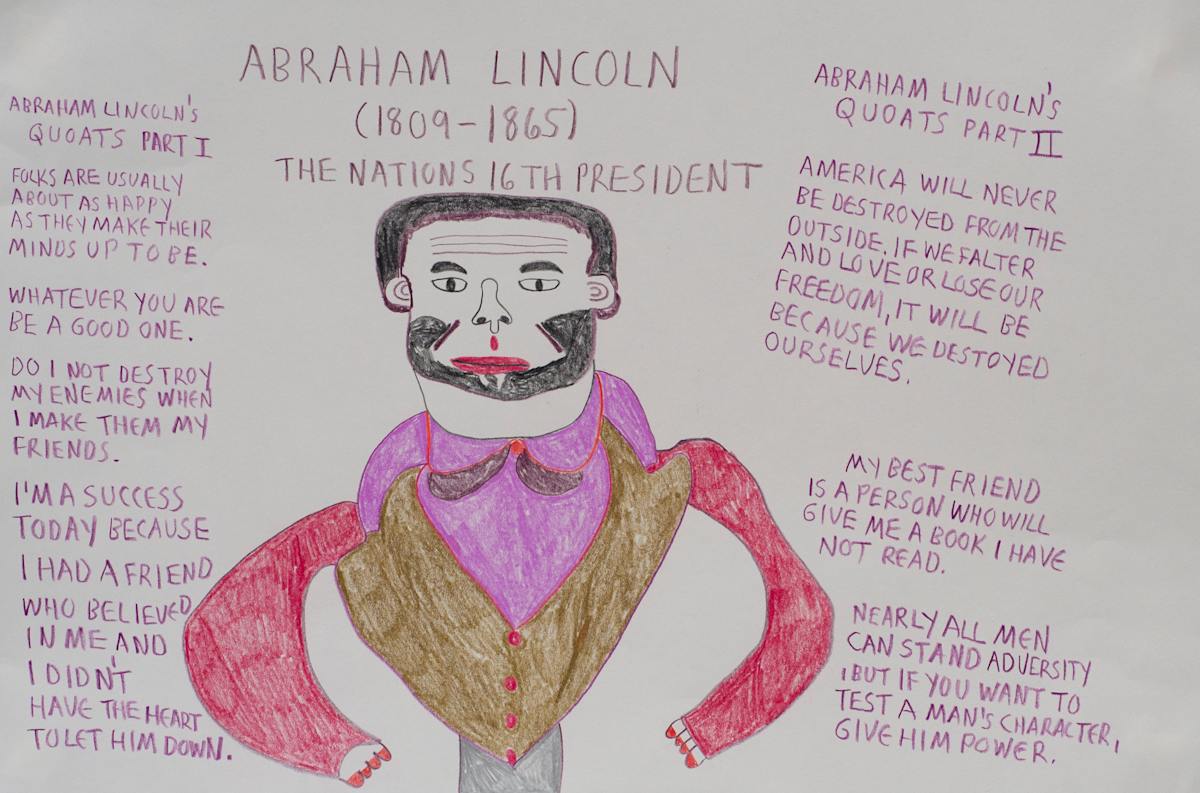 ABRAHAM LINCOLN
(1809-1865)
THE NATIONS 16TH PRESIDENT
ABRAHAM LINCOLN'S
QUOATS PART I
FOLKS ARE USUALLY
ABOUT AS HAPPY
AS THEY MAKE THEIR
MINDS UP TO BE.
WHATEVER YOU ARE
BE A GOOD ONE.
DO I NOT DESTROY
MY ENEMIES WHEN
I MAKE THEM MY
FRIENDS.
I'M A SUCCESS
TODAY BECAUSE
I HAD A FRIEND
WHO BELIEVED
IN ME AND
I DIDN'T
HAVE THE HEART
TO LET HIM DOWN.
ABRAHAM LINCOLN'S
QUOATS PART II
AMERICA WILL NEVER
BE DESTROYED FROM THE
OUTSIDE. IF WE FALTER
AND LOVE OR LOSE OUR
FREEDOM, IT WILL BE
BECAUSE WE DESTOYED
OURSELVES.
MY BEST FRIEND
IS A PERSON WHO WILL
GIVE ME A BOOK I HAVE
NOT READ.
NEARLY ALL MEN
CAN STAND ADVERSITY
, BUT IF YOU WANT TO
TEST A MAN'S CHARACTER,
GIVE HIM POWER.